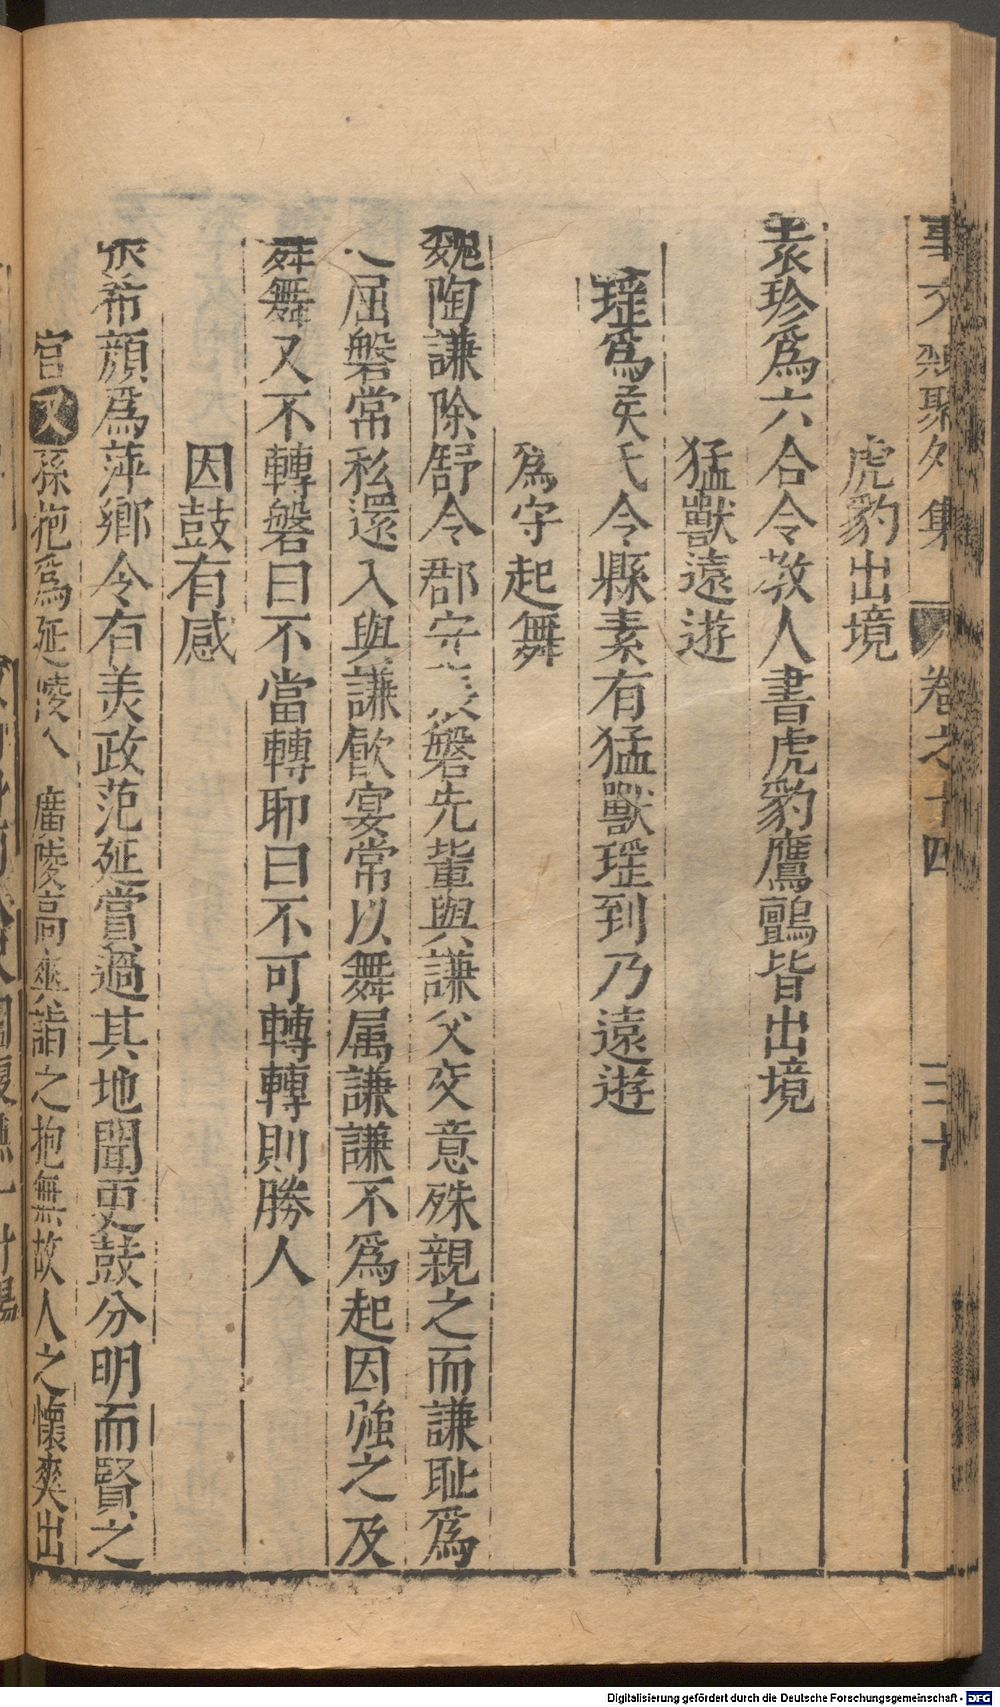 事文類聚外集 卷之十四 三十
虎豹出境
袁珍為六合令教人書虎豹鷹鸇皆出境
猛獸遠遊
瑝為矦氏令縣素有猛獸瑝到乃遠遊
為守起舞
魏陶謙除舒令郡守張磐先輩與謙父交意殊親之而謙恥為
之屈磐常私還入與謙飲宴常以舞属謙謙不為起因強之及
舞舞又不轉磐曰不當轉耶曰不可轉轉則勝人
因鼓有感
張希顔為萍鄉令有美政范延嘗過其地聞更鼓分明而賢之
官又孫抱為延陵人 廣陵高爽詣之抱無故人之懷爽出
Digitalisierung gefördert durch die Deutsche Forschungsgemeinschaft - DFG